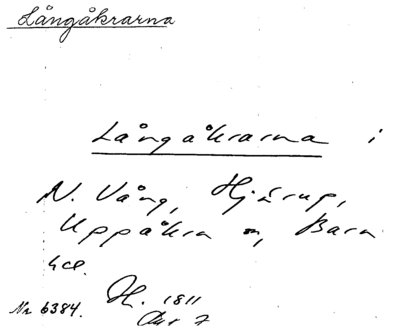 Långåkrarna
Långåkrarna i
N. Vång, Hjärup,
Uppåkra sn, Bara
hd.
H. 1811
Nr 6384. Akt 7